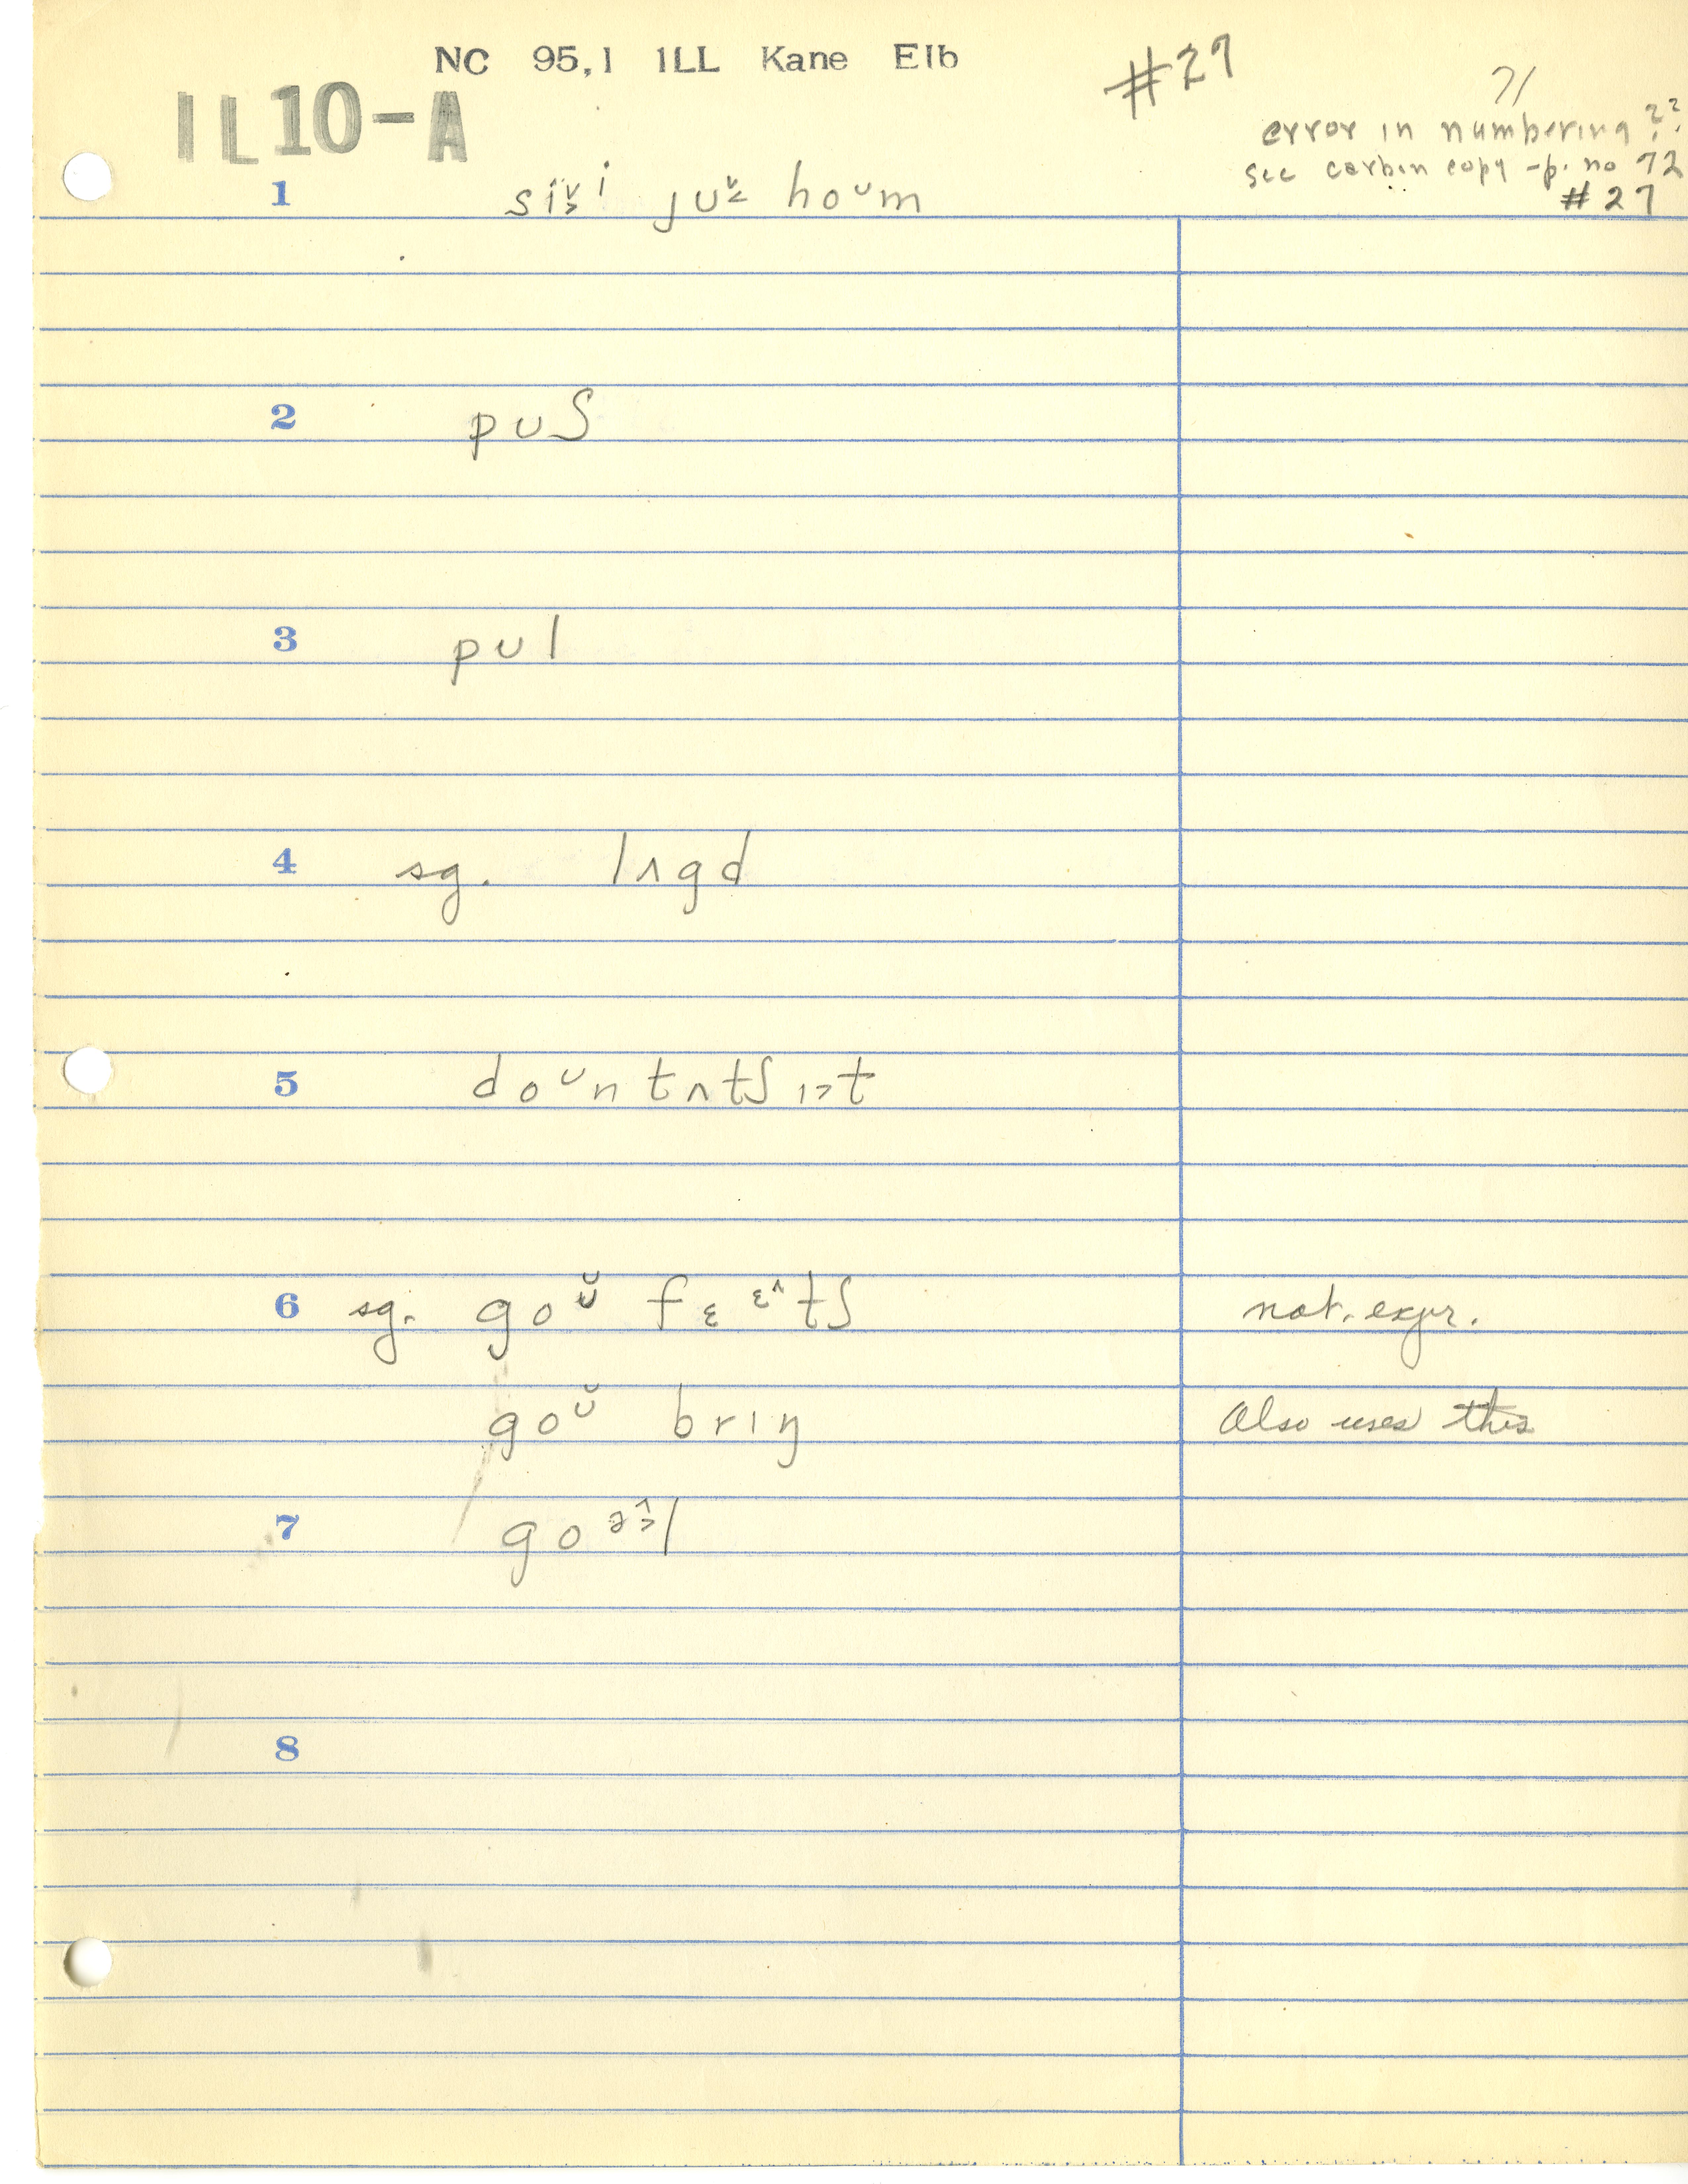 NC 95,1 ILL Kane Elb
#27
71
IL10-A
error in numbering ??
see carbon copy - p. no 72
#27
1 si i ju hoᴜm
2 puʃ
3 pul
4 sg. lʌgd
5 doᴜn tʌtʃ ɪ˃t
6 sg. goᴜ̆ fɛ ɛ^tʃ not. expr.
goᴜ̆ brɪŋ Also uses this
7 go l
8